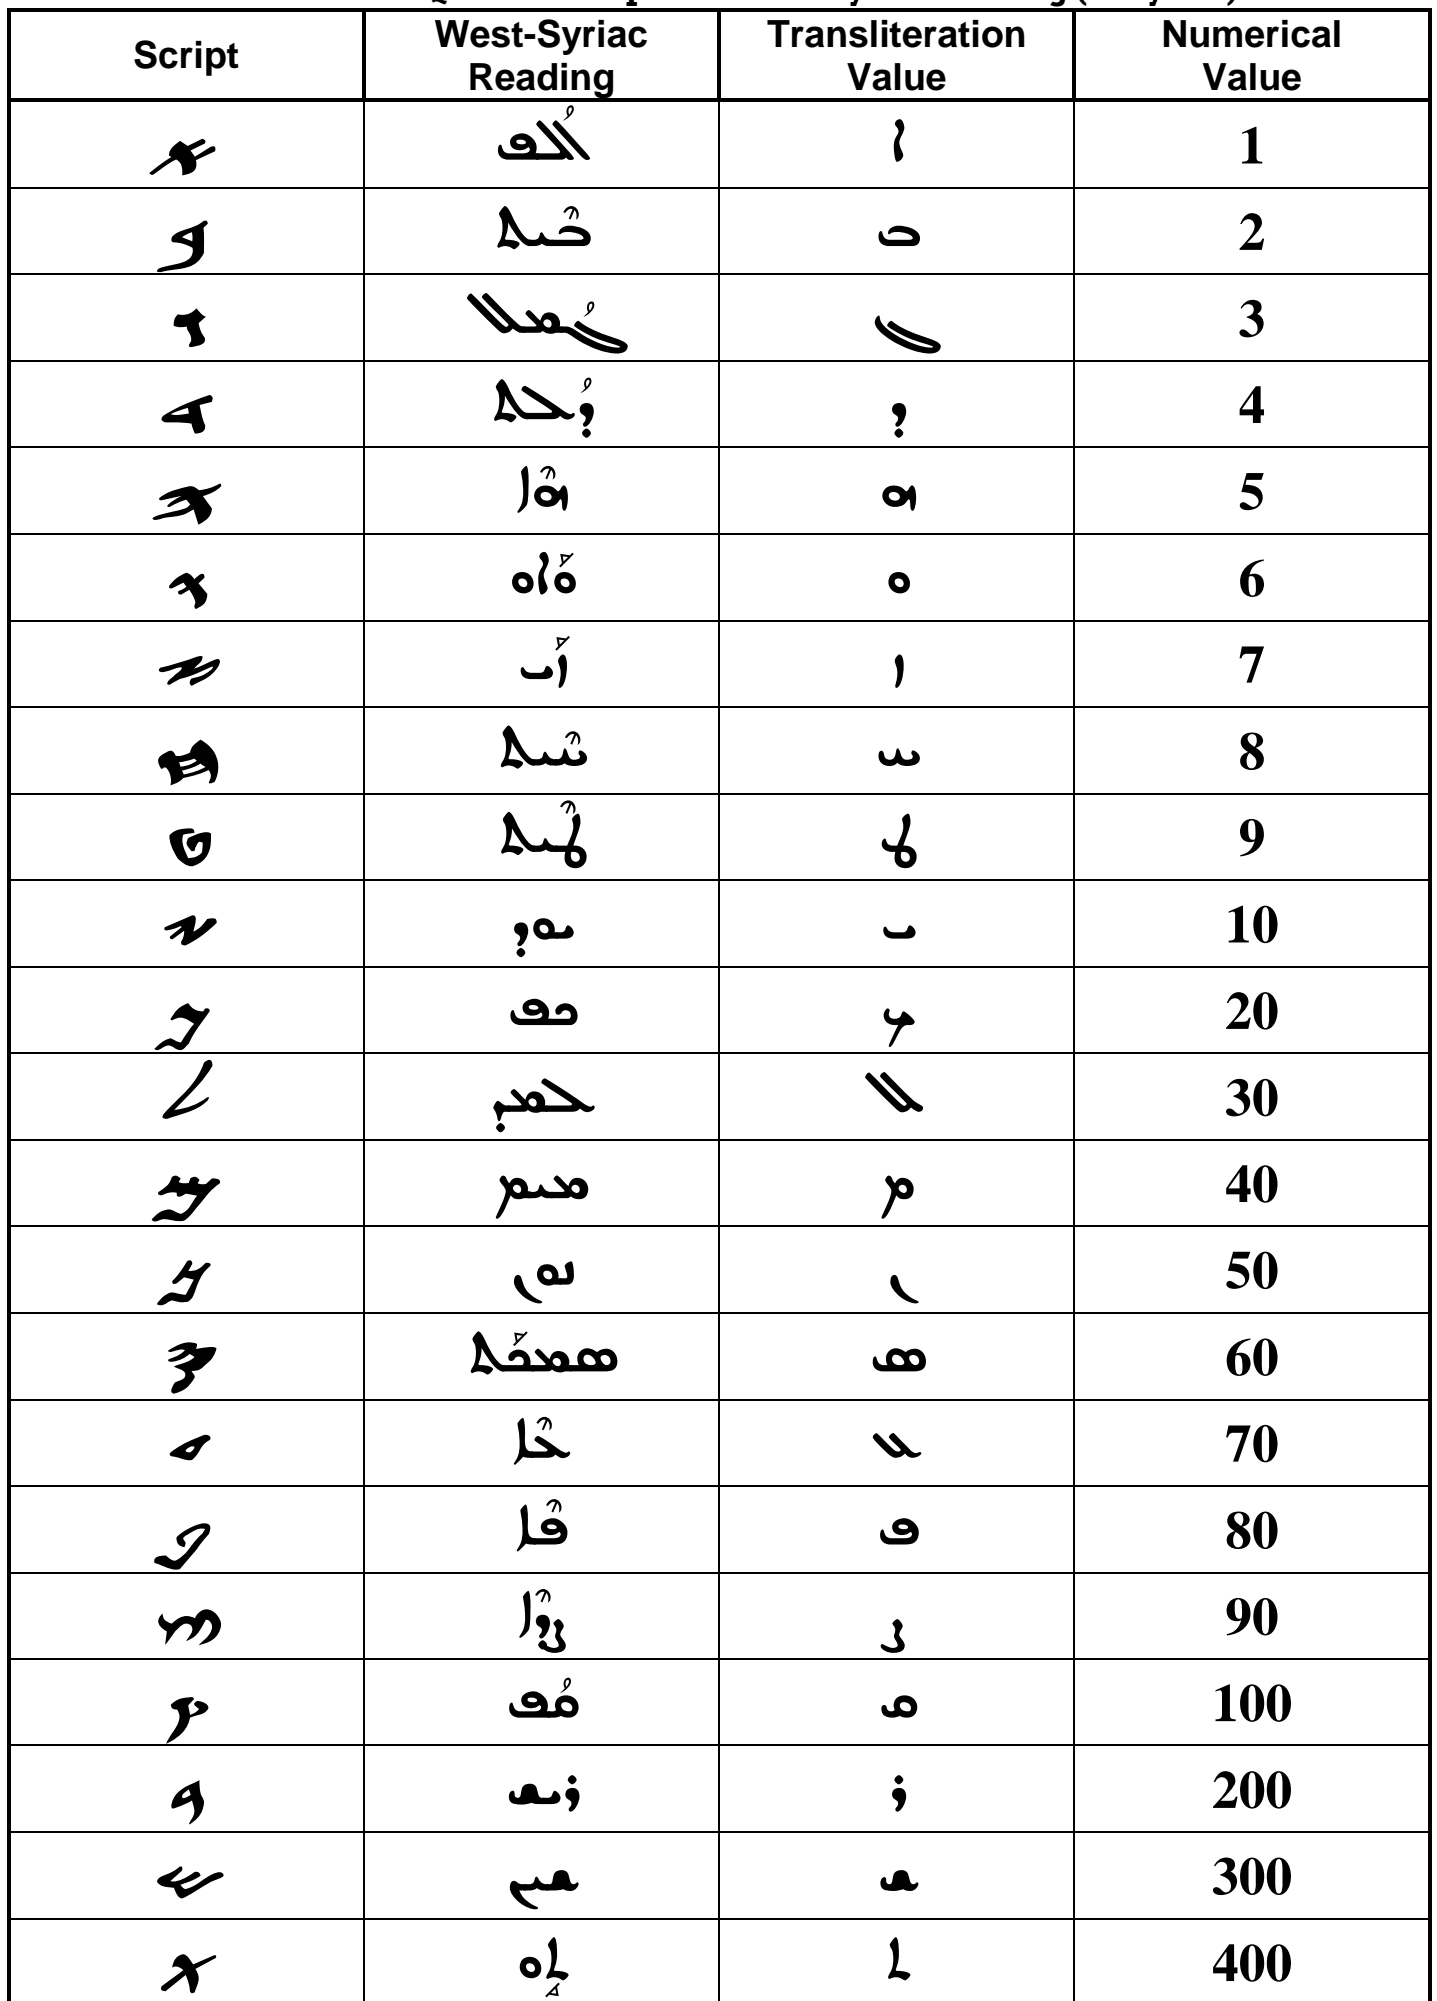 Script West-Syriac Reading Transliteration Value Numerical Value
ࠀ ܐܳܠܦ ܐ 1
ࠁ ܒܶܝܬ ܒ 2
ࠂ ܓܳܡܠ ܓ 3
ࠃ ܕܳܠܬ ܕ 4
ࠄ ܗܶܐ ܗ 5
ࠅ ܘܰܐܘ ܘ 6
ࠆ ܙܰܝ ܙ 7
ࠇ ܚܶܝܬ ܚ 8
ࠈ ܛܶܝܬ ܛ 9
ࠉ ܝܘܕ ܝ 10
ࠊ ܟܦ ܟ 20
ࠋ ܠܡܕ ܠ 30
ࠌ ܡܝܡ ܡ 40
ࠍ ܢܘܢ ܢ 50
ࠎ ܣܡܟܰܬ ܣ 60
ࠏ ܥܶܐ ܥ 70
ࠐ ܦܶܐ ܦ 80
ࠑ ܨܕܶܐ ܨ 90
ࠒ ܩܳܦ ܩ 100
ࠓ ܪܝܫ ܪ 200
ࠔ ܫܝܢ ܫ 300
ࠕ ܬܱܘ ܬ 400